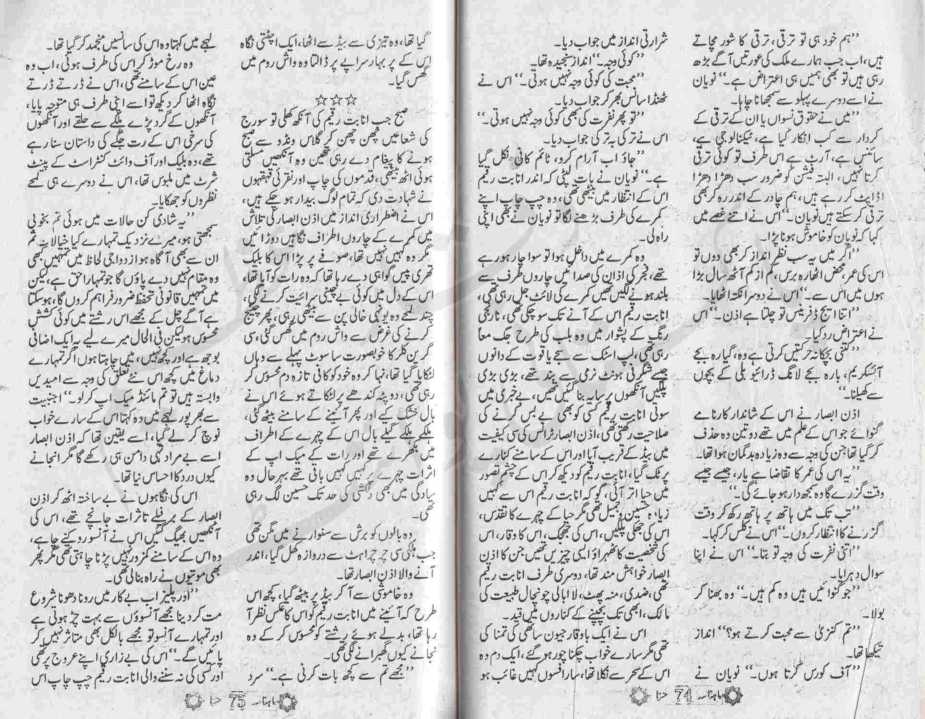 ”ہم خود ہی تو ترقی، ترقی کا شور مچاتے
ہیں، اب جب ہمارے ملک کی عورتیں آگے بڑھ
رہی ہیں تو بھی ہمیں ہی اعتراض ہے۔“ نویان
نے اسے دوسرے پہلو سے سمجھانا چاہا۔
”میں نے حقوق نسواں یا ان کے ترقی کے
کردار سے کب انکار کیا ہے، ٹیکنالوجی ہے،
سائنس ہے، آرٹ ہے اس طرف تو کوئی ترقی
کرتا نہیں، البتہ فیشن کو ضرور سب دھڑا دھڑا
اڈاپٹ کر رہے ہیں، ہم چادر کے اندر رہ کر بھی
ترقی کر سکتے ہیں نویان۔“ اس نے اتنے غصے میں
کہا کہ نویان کو خاموش ہونا پڑا۔
”اگر میں یہ سب نظر انداز کر بھی دوں تو
اس کی عمر، محض اٹھارہ برس، کم از کم آٹھ سال بڑا
ہوں میں اس سے۔“ اس نے دوسرا نکتہ اٹھایا۔
”اتنا ایج ڈفرینس تو چلتا ہے اذن۔“ اس
نے اعتراض رد کیا۔
”کتنی بچکانہ حرکتیں کرتی ہے وہ، گیارہ بجے
آئسکریم، بارہ بجے لانگ ڈرائیو، بلی کے بچوں
سے کھیلنا۔“
اذن ابصار نے اس کے شاندار کارنامے
گنوائے جو اس کے علم میں تھے دو تین وہ حذف
کر گیا تھا جن کی وجہ سے وہ زیادہ بدگمان ہوا تھا۔
”یہ اس کی عمر کا تقاضا ہے یار، جیسے جیسے
وقت گزرے گا وہ سمجھدار ہو جائے گی۔“
”تب تک میں ہاتھ پر ہاتھ رکھ کر وقت
گزرنے کا انتظار کروں۔“ اس نے کلس کر کہا۔
”اتنی نفرت کی وجہ تو بتا۔“ اس نے اپنا
سوال دہرایا۔
”جو گنوائیں ہیں وہ کم ہیں۔“ وہ بھنا کر
بولا۔
”تم کنزیٰ سے محبت کرتے ہو؟“ انداز
تیکھا تھا۔
”آف کورس کرتا ہوں۔“ نویان نے
شرارتی انداز میں جواب دیا۔
”کوئی وجہ۔“ انداز سنجیدہ تھا۔
”محبت کی کوئی وجہ نہیں ہوتی۔“ اس نے
ٹھنڈا سانس بھر کر جواب دیا۔
”تو پھر نفرت کی بھی کوئی وجہ نہیں ہوتی۔“
اس نے ترکی بہ ترکی جواب دیا۔
”جاؤ اب آرام کرو، ٹائم کافی نکل گیا
ہے۔“ نویان نے بات لپیٹی کہ اندر انابت رقیم
اس کے انتظار میں بیٹھی تھی، وہ چپ چاپ اپنے
کمرے کی طرف بڑھنے لگا تو نویان نے بھی اپنی
راہ لی۔
وہ کمرے میں داخل ہوا تو سوا چار ہو رہے
تھے، فجر کی اذان کی صدائیں چاروں طرف سے
بلند ہونے لگیں تھیں کمرے کی لائٹ جل رہی تھی،
انابت رقیم اس کے آنے تک سو چکی تھی، نارنگی
رنگ کے پشواز میں وہ بلب کی طرح جگ مگا
رہی تھی، لپ اسٹک سے سجے یاقوت کے دانوں
جیسے شنگرفی ہونٹ نرمی سے بند تھے، بڑی بڑی
پلکیں آنکھوں پر سایہ بنا گئیں تھیں، بے خبری میں
سوئی انابت رقیم کسی کو بھی بے بس کرنے کی
صلاحیت رکھتی تھی، اذن ابصار ٹرانس کی سی کیفیت
میں بیڈ کے قریب آیا اور اس کے سامنے کنارے
پر ٹک گیا، انابت رقیم کو دیکھ کر اس کے چشم تصور
میں حیا اتر آئی، گو کہ انابت رقیم اس سے کہیں
زیادہ حسین و جمیل تھی مگر حیا کے چہرے کا تقدس،
اس کی جھکی پلکیں، اس کی جھجک، اس کا وقار، اس
کی شخصیت کا ٹھہراؤ ایسی چیزیں تھیں جن کا اذن
ابصار خواہش مند تھا، دوسری طرف انابت رقیم
تھی، ضدی، منہ پھٹ، لا ابالی چونچال طبیعت کی
مالک، ابھی تک بچپنے کے کناروں میں قید۔
اس نے ایک باوقار جیون ساتھی کی تمنا کی
تھی مگر سارے خواب چکنا چور ہو گئے، ایک دم وہ
اس کے سحر سے نکلا تھا، سارا افسوں کہیں غائب ہو
ماہنامہ حنا 74
گیا تھا، وہ تیزی سے بیڈ سے اٹھا، ایک اچٹتی نگاہ
اس کے پر بہار سراپے پر ڈالتا وہ واش روم میں
گھس گیا۔
☆☆☆
صبح جب انابت رقیم کی آنکھ کھلی تو سورج
کی شعاعیں چھن چھن کر گلاس ونڈو سے صبح
ہونے کا پیغام دے رہی تھیں وہ آنکھیں مسلتی
ہوئی اٹھ بیٹھی، قدموں کی چاپ اور نقرئی قہقہوں
نے شہادت دی کہ تمام لوگ بیدار ہو چکے ہیں،
اس نے اضطراری انداز میں اذن ابصار کی تلاش
میں کمرے کے چاروں اطراف نگاہیں دوڑائیں
مگر وہ کہیں نہیں تھا، صوفے پر پڑا اس کا بلیک
تھری پیس گواہی دے رہا تھا کہ وہ رات کو آیا تھا،
اس کے دل میں کوئی بے چینی سی سرائیت کرنے لگی،
چند لمحے وہ یونہی خالی پن سے بیٹھی رہی، پھر چینج
کرنے کی غرض سے واش روم میں گھس گئی، سی
گرین کلر کا خوبصورت سا سوٹ پہلے سے وہاں
لٹکایا گیا تھا، نہا کر وہ خود کو کافی تازہ دم محسوس کر
رہی تھی، دوپٹہ کندھے پر لٹکاتے ہوئے اس نے
بال خشک کیے اور پھر آئینے کے سامنے بیٹھ گئی،
ہلکے ہلکے گیلے بال اس کے چہرے کے اطراف
میں بکھرے تھے اور رات کے میک اپ کے
اثرات چہرے پر کہیں کہیں باقی تھے بہرحال وہ
سادگی میں بھی دلکشی کی حد تک حسین لگ رہی
تھی۔
وہ بالوں کو برش سے سنوارنے میں مگن تھی
جب ہلکی سی چرچراہٹ سے دروازہ کھل گیا، اندر
آنے والا اذن ابصار تھا۔
وہ خاموشی سے آ کر بیڈ پر بیٹھ گیا، کچھ اس
طرح کہ آئینے میں انابت رقیم کو اس کا عکس نظر آ
رہا تھا، بدلے ہوئے رشتے کو محسوس کر کے وہ
نجانے کیوں گھبرانے لگی تھی۔
”مجھے تم سے کچھ بات کرنی ہے۔“ سرد
لہجے میں کہتا وہ اس کی سانسیں منجمد کر گیا تھا۔
وہ رخ موڑ کر اس کی طرف ہوئی، اب وہ
عین اس کے سامنے تھی، اس نے ڈرتے ڈرتے
نگاہ اٹھا کر دیکھا تو اسے اپنی طرف ہی متوجہ پایا،
آنکھوں کے گرد پڑے ہلکے سے حلقے اور آنکھوں
کی سرخی اس کے رت جگے کی داستان سنا رہے
تھے، وہ بلیک اور آف وائٹ کنٹراسٹ کے پینٹ
شرٹ میں ملبوس تھا، اس نے دوسرے ہی لمحے
نظروں کو جھکا لیا۔
”یہ شادی کن حالات میں ہوئی تم بخوبی
سمجھتی ہو، میرے نزدیک تمہارے کیا خیالات تم
ان سے بھی آگاہ ہو ازدواجی لحاظ میں تمہیں بھی
وہ مقام نہیں دے پاؤں گا جو تمہارا حق ہے، لیکن
میں تمہیں قانونی تحفظ ضرور فراہم کروں گا، ہو سکتا
ہے آگے چل کے مجھے اس رشتے میں کوئی کشش
محسوس ہو لیکن فی الحال میرے لیے یہ ایک اضافی
بوجھ ہے اور کچھ نہیں، میں چاہتا ہوں اگر تمہارے
دماغ میں کچھ اس نئے تعلق کی وجہ سے امیدیں
وابستہ ہیں تو تم مائنڈ میک اپ کر لو۔“ اجنبیت
سے بھرپور لہجے میں وہ کہتا اس کے سارے خواب
نوچ کر لے گیا، اسے یقین تھا کہ اذن ابصار
اسے بے مراد تہی دامن ہی رکھے گا مگر انجانے
کیوں درد کا احساس نیا تھا۔
اس کی نگاہوں نے بے ساختہ اٹھ کر اذن
ابصار کے برفیلے تاثرات جانچے تھے، اس کی
آنکھیں بھیگ گئیں اس نے آنسو روکنے چاہے،
وہ اس کے سامنے کمزور نہیں پڑنا چاہتی تھی مگر پھر
بھی موتیوں نے راہ بنا لی تھی۔
”اور پلیز اب بے کار میں رونا دھونا شروع
مت کر دینا مجھے آنسوؤں سے بہت چڑ ہوتی ہے
اور تمہارے آنسو تو مجھے بالکل بھی متاثر نہیں کر
پائیں گے۔“ اس کی بے زاری اپنے عروج پر تھی
اور کسی کی نہ سننے والی انابت رقیم چپ چاپ اس
ماہنامہ حنا 75